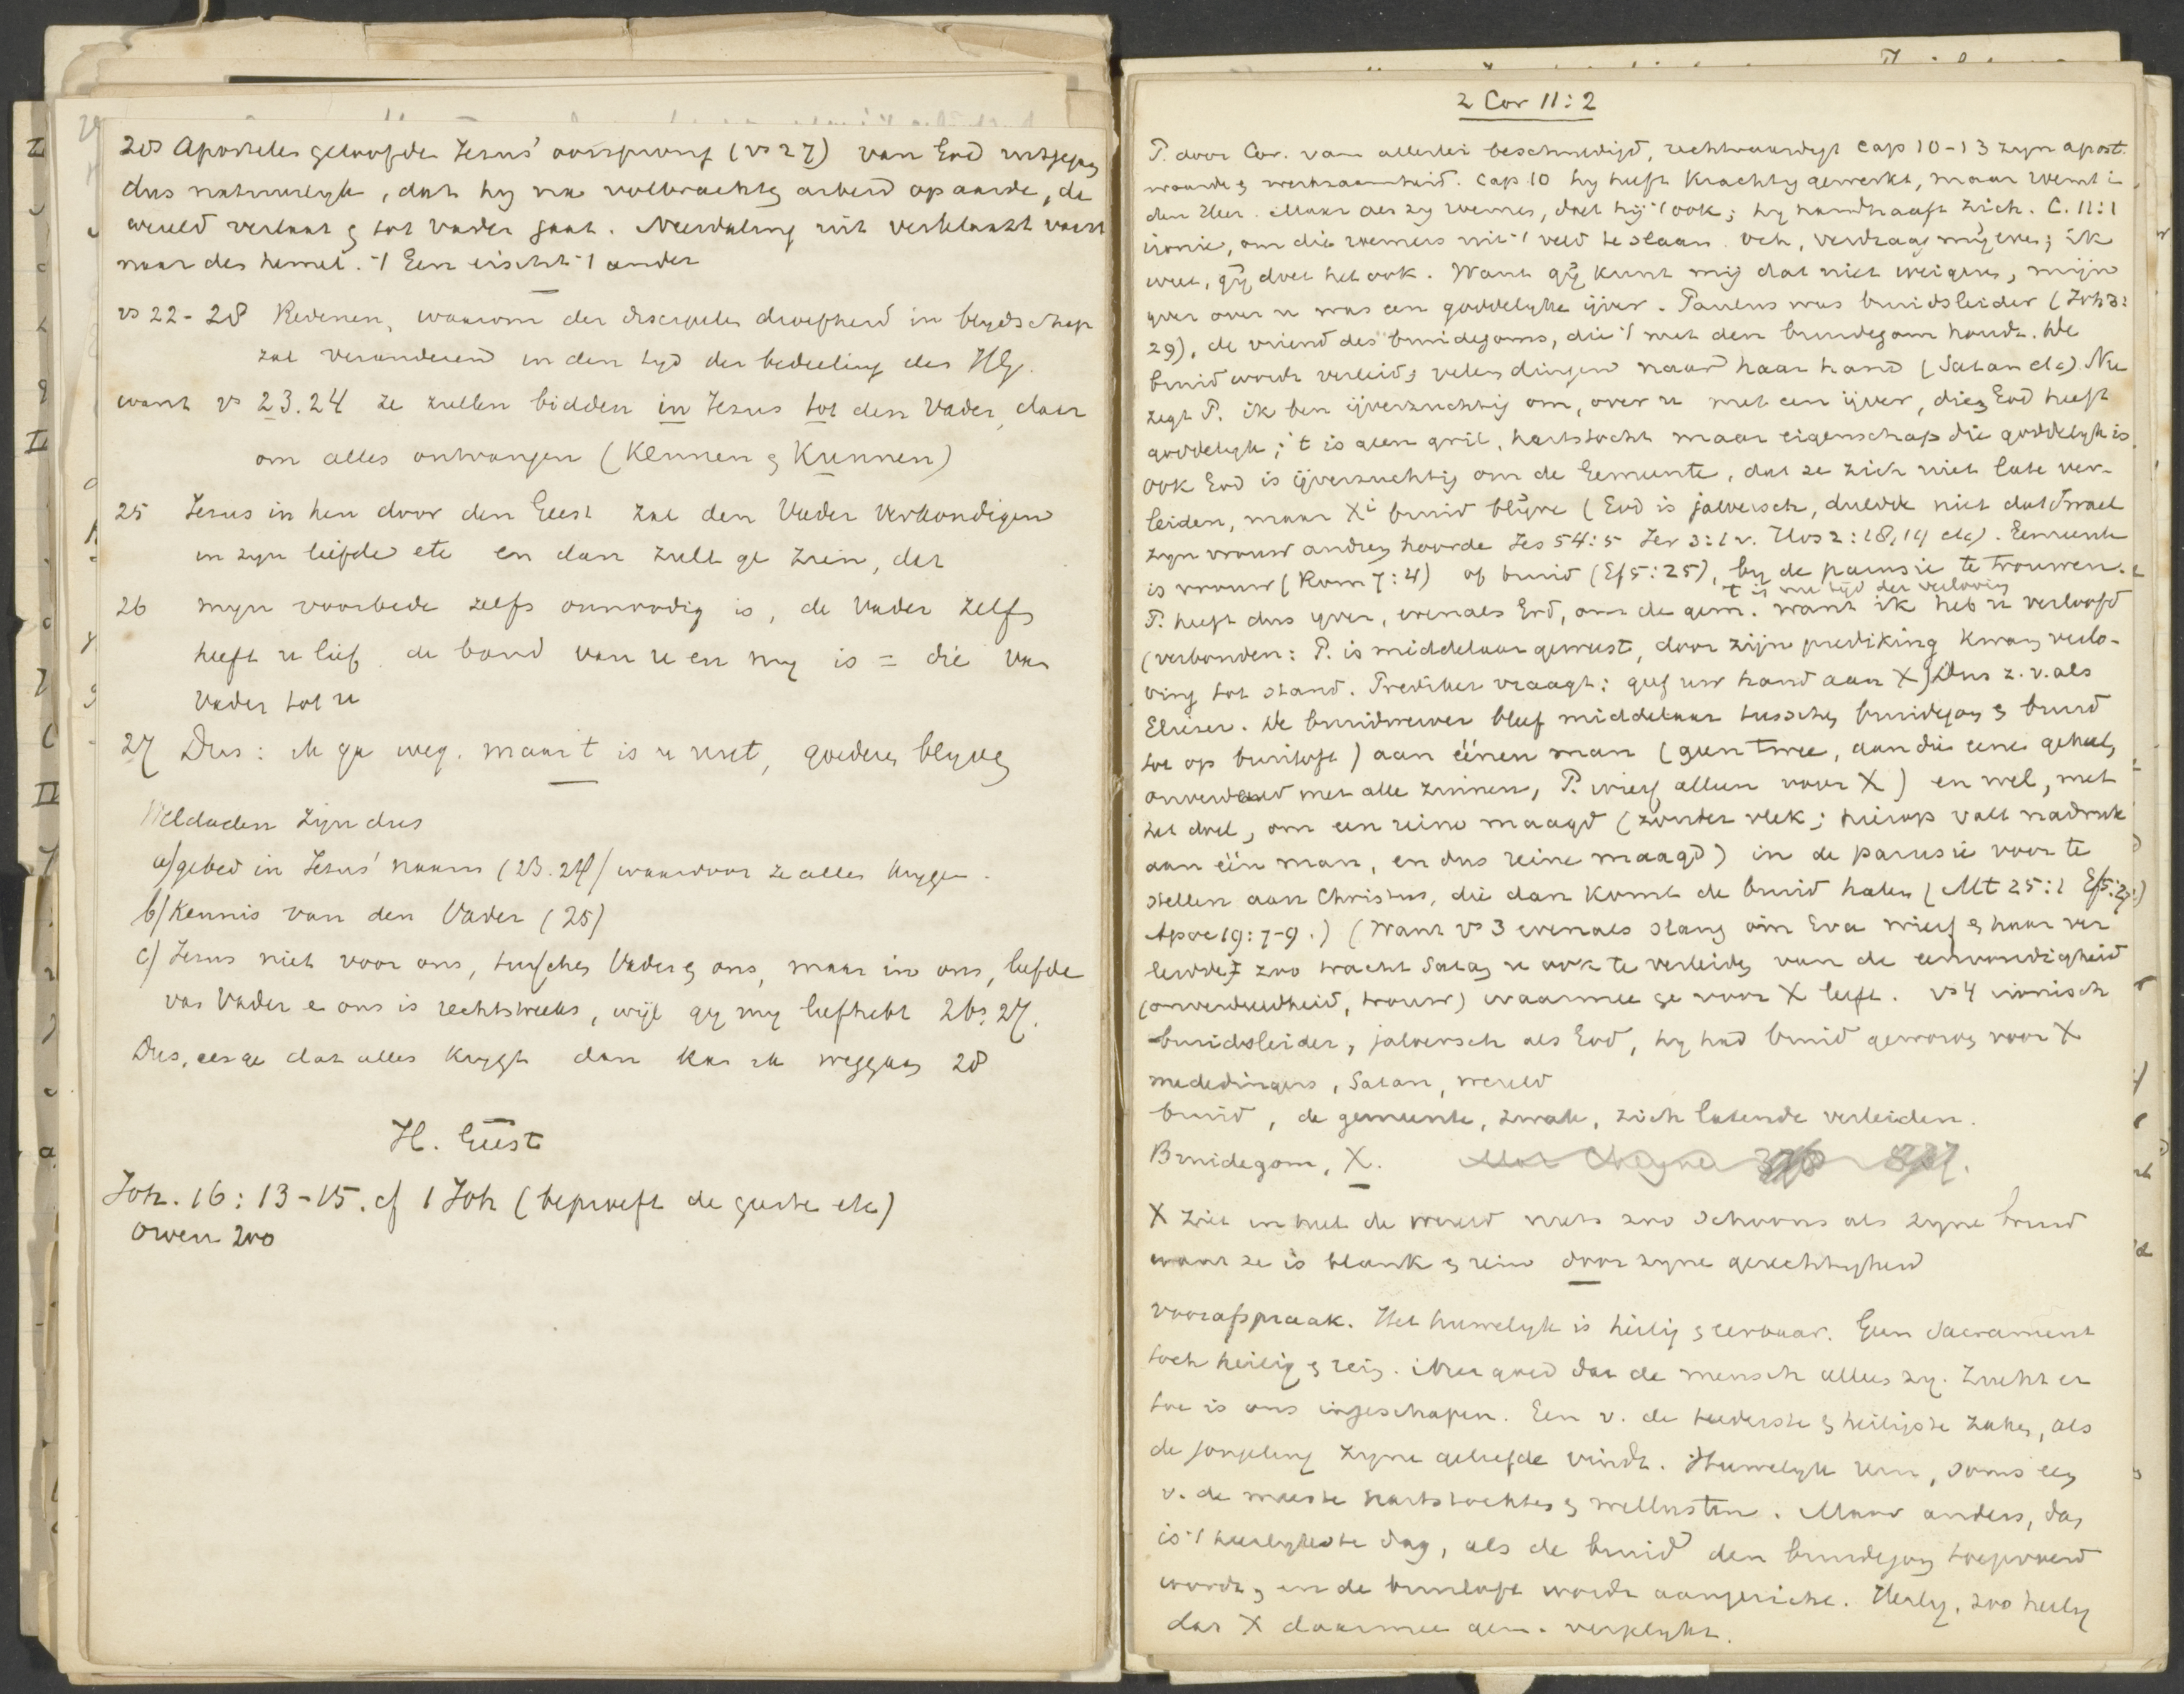 28 Apostelen geloofden Jezus' oorsprong (vs 27) van God uitgegaan
dus natuurlyk, dat hy na volbrachten arbeid op aarde, de
wereld verlaat & tot vader gaat. Nederdaling uit
naar den hemel. 't Een eischt 't ander
vs 22-28 Redenen, waarom der discipelen droefheid in blydschap
zal veranderen in den tyd der bedeeling des HG.
want vs 23.24 ze zullen bidden in Jezus tot den Vader, daar
om alles ontvangen (Kennen & Kunnen)
25 Jezus in hen door den Geest zal den Vader verkondigen
in zyn liefde etc en dan zult ge zien, dat
26 myn voorbede zelfs onnoodig is, de Vader zelf
heeft u lief. de band van u en my is = die van
Vader tot u
27 Dus: ik ga weg. maar 't is u nut, goederen blyven
Weldaden zijn dus
a/ gebed in Jezus' naam (23.24) waardoor ze alles krygen.
b/ Kennis van den Vader (25)
c/ Jezus niet voor ons, tusschen Vader & ons, maar in ons, liefde
van Vader & ons is rechtstreeks, wijl gy my liefhebt 26. 27.
Dus, als ge dat alles krygt dan kan ik weggaan 28
H. Geest
Joh. 16: 13-15. cf 1 Joh (beproeft de geesten etc)
Owen 200
2 Cor 11:2
P. door Cor. van allerlei beschuldigd, rechtvaardigt cap 10-13 zyn apost.
waarde & werkzaamheid. Cap 10 hy heeft krachtig gewerkt, maar roemt in
den Heer. Maar als zy roemen, doet hij 't ook; hy handhaaft zich. C. 11:1
ironie, om die roemers uit 't veld te slaan. Och, verdraag mij even; ik
weet, gij doet het ook. Want gij kunt mij dat niet weigeren, mijn
yver over u was een goddelyke ijver. Paulus was bruidsleider (Joh 3:
29), de vriend des bruidegoms, die 't met den bruidegom houdt. De
bruid wordt verleid, velen dingen naar haar hand (Satan etc). Nu
zegt P. ik ben ijverzuchtig om, over u met een ijver, dien God heeft
goddelyk; 't is geen gril, hartstocht maar eigenschap die goddelyk is.
Ook God is ijverzuchtig om de Gemeente, dat ze zich niet late ver-
leiden, maar Xi bruid blijve (God is jaloersch, duldde niet dat Israel
zyn vrouw andren hoorde Jes 54:5 Jer 3:1 v. Hos 2:18,19 etc). Gemeente
is vrouw (Rom 7:4) of bruid (Ef 5:25), by de parusie te trouwen.
't is nu tyd der verloving
P. heeft dus yver, evenals God, om de gem. want ik heb u verloofd
(verbonden: P. is middelaar geweest, door zijn prediking kwam verlo-
ving tot stand. Prediker vraagt: geef uw hand aan X) Dus z. v. als
Eliezer. De bruidwerver bleef middelaar tusschen bruidegom & bruid
tot op bruiloft) aan éénen man (geen twee, aan die eene geheel,
onverdeeld met alle zinnen, P. wierf alleen voor X) en wel, met
het doel, om een reine maagd (zonder vlek; hierop valt nadruk
aan één man, en dus reine maagd) in de parusie voor te
stellen aan Christus, die dan komt de bruid halen (Mt 25:1 Ef 5:27)
Apoc 19:7-9.) (Want vs 3 evenals slang om Eva wierf & haar ver
leidde, zoo tracht Satan u ook te verleiden van de eenvoudigheid
(onverdeeldheid, trouw) waarmee ge voor X leeft. vs 4 ironisch
bruidsleider, jaloersch als God, hy had bruid geworven voor X
mededingers, Satan, wereld
bruid, de gemeente, zwak, zich latende verleiden.
Bruidegom, X.
X ziet in heel de wereld niets zoo schoons als zyne bruid
want ze is blank & rein door zyne gerechtigheid
voorafspraak. Het huwelyk is heilig & eerbaar. Geen Sacrament
toch heilig & rein. Niet goed dat de mensch alleen zy. Zucht er
toe is ons ingeschapen. Een v. de teederste & heiligste zaken, als
de jongeling zyne geliefde vindt. Huwelyk nu, soms een
v. de meeste hartstochten & wellusten. Maar anders, dan
is 't heerlykste dag, als de bruid den bruidegom toegevoerd
wordt, en de bruiloft wordt aangericht. Heilig, zoo heilig
dat X daarmee gem. vergelykt.